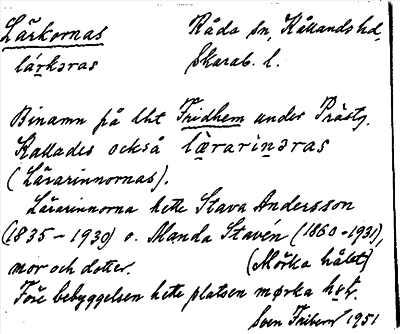 Lärkornas Råda sn, Kållands hd,
lärkơras Skarab. l.
Binamn på lht Fridhem under Prästg.
Kallades också lærarinơras
(Lärarinnornas).
Lärarinnorna hette Stava Andersson
(1835-1930) o. Manda Stavén (1860-1931),
mor och dotter. (Mörka hålet)
Före bebyggelsen hette platsen mørka
Sven Friberg 1951